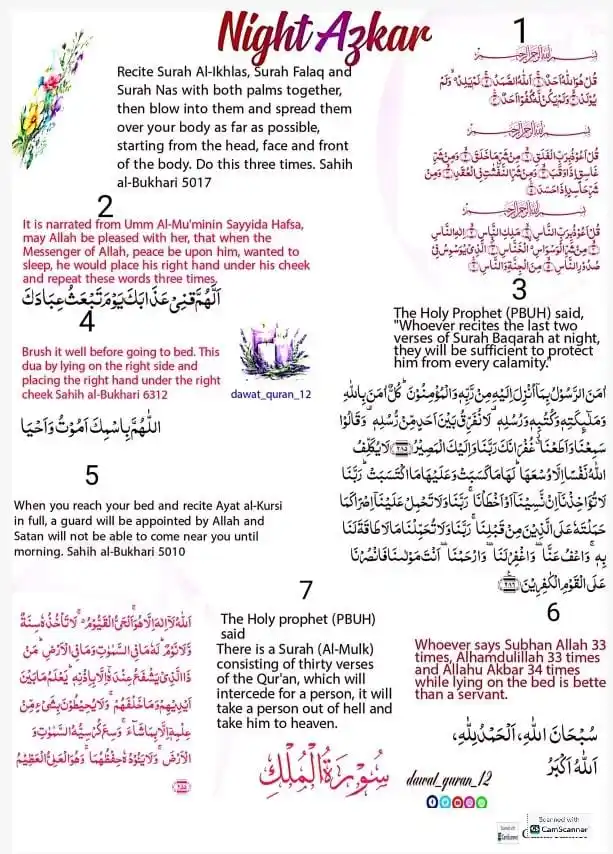 Night Azkar
Recite Surah Al-Ikhlas, Surah Falaq and
Surah Nas with both palms together,
then blow into them and spread them
over your body as far as possible,
starting from the head, face and front
of the body. Do this three times. Sahih
al-Bukhari 5017
1
بِسْمِ اللهِ الرَّحْمٰنِ الرَّحِيْمِ
قُلْ هُوَ اللهُ اَحَدٌ ۝۱ اَللهُ الصَّمَدُ ۝۲ لَمْ يَلِدْ ۙ وَلَمْ
يُوْلَدْ ۝۳ وَلَمْ يَكُنْ لَّهٗ كُفُوًا اَحَدٌ ۝۴
بِسْمِ اللهِ الرَّحْمٰنِ الرَّحِيْمِ
قُلْ اَعُوْذُ بِرَبِّ الْفَلَقِ ۝۱ مِنْ شَرِّ مَا خَلَقَ ۝۲ وَمِنْ شَرِّ
غَاسِقٍ اِذَا وَقَبَ ۝۳ وَمِنْ شَرِّ النَّفّٰثٰتِ فِي الْعُقَدِ ۝۴ وَمِنْ
شَرِّ حَاسِدٍ اِذَا حَسَدَ ۝۵
بِسْمِ اللهِ الرَّحْمٰنِ الرَّحِيْمِ
قُلْ اَعُوْذُ بِرَبِّ النَّاسِ ۝۱ مَلِكِ النَّاسِ ۝۲ اِلٰهِ النَّاسِ
۝۳ مِنْ شَرِّ الْوَسْوَاسِ الْخَنَّاسِ ۝۴ الَّذِيْ يُوَسْوِسُ فِيْ
صُدُوْرِ النَّاسِ ۝۵ مِنَ الْجِنَّةِ وَالنَّاسِ ۝۶
2
It is narrated from Umm Al-Mu'minin Sayyida Hafsa,
may Allah be pleased with her, that when the
Messenger of Allah, peace be upon him, wanted to
sleep, he would place his right hand under his cheek
and repeat these words three times.
اَللّٰهُمَّ قِنِيْ عَذَابَكَ يَوْمَ تَبْعَثُ عِبَادَكَ
3
The Holy Prophet (PBUH) said,
"Whoever recites the last two
verses of Surah Baqarah at night,
they will be sufficient to protect
him from every calamity."
اٰمَنَ الرَّسُوْلُ بِمَاۤ اُنْزِلَ اِلَيْهِ مِنْ رَّبِّهٖ وَالْمُؤْمِنُوْنَ ؕ كُلٌّ اٰمَنَ بِاللهِ
وَمَلٰٓئِكَتِهٖ وَكُتُبِهٖ وَرُسُلِهٖ ۟ لَا نُفَرِّقُ بَيْنَ اَحَدٍ مِّنْ رُّسُلِهٖ ۟ وَقَالُوْا
سَمِعْنَا وَاَطَعْنَا ٭۫ غُفْرَانَكَ رَبَّنَا وَاِلَيْكَ الْمَصِيْرُ ۝۲۸۵ لَا يُكَلِّفُ
اللهُ نَفْسًا اِلَّا وُسْعَهَا ؕ لَهَا مَا كَسَبَتْ وَعَلَيْهَا مَا اكْتَسَبَتْ ؕ رَبَّنَا
لَا تُؤَاخِذْنَاۤ اِنْ نَّسِيْنَاۤ اَوْ اَخْطَاْنَا ۚ رَبَّنَا وَلَا تَحْمِلْ عَلَيْنَاۤ اِصْرًا كَمَا
حَمَلْتَهٗ عَلَى الَّذِيْنَ مِنْ قَبْلِنَا ۚ رَبَّنَا وَلَا تُحَمِّلْنَا مَا لَا طَاقَةَ لَنَا
بِهٖ ۚ وَاعْفُ عَنَّا ۟ وَاغْفِرْ لَنَا ۟ وَارْحَمْنَا ۟ اَنْتَ مَوْلٰىنَا فَانْصُرْنَا
عَلَى الْقَوْمِ الْكٰفِرِيْنَ ۝۲۸۶
4
Brush it well before going to bed. This
dua by lying on the right side and
placing the right hand under the right
cheek Sahih al-Bukhari 6312
dawat_quran_12
اَللّٰهُمَّ بِاسْمِكَ اَمُوْتُ وَاَحْيَا
5
When you reach your bed and recite Ayat al-Kursi
in full, a guard will be appointed by Allah and
Satan will not be able to come near you until
morning. Sahih al-Bukhari 5010
اَللهُ لَاۤ اِلٰهَ اِلَّا هُوَ ۚ اَلْحَيُّ الْقَيُّوْمُ ۚ لَا تَاْخُذُهٗ سِنَةٌ
وَّلَا نَوْمٌ ؕ لَهٗ مَا فِي السَّمٰوٰتِ وَمَا فِي الْاَرْضِ ؕ مَنْ
ذَا الَّذِيْ يَشْفَعُ عِنْدَهٗۤ اِلَّا بِاِذْنِهٖ ؕ يَعْلَمُ مَا بَيْنَ
اَيْدِيْهِمْ وَمَا خَلْفَهُمْ ۚ وَلَا يُحِيْطُوْنَ بِشَيْءٍ مِّنْ
عِلْمِهٖۤ اِلَّا بِمَا شَآءَ ۚ وَسِعَ كُرْسِيُّهُ السَّمٰوٰتِ وَ
الْاَرْضَ ۚ وَلَا يَـُٔوْدُهٗ حِفْظُهُمَا ۚ وَهُوَ الْعَلِيُّ الْعَظِيْمُ
۝۲۵۵
6
Whoever says Subhan Allah 33
times, Alhamdulillah 33 times
and Allahu Akbar 34 times
while lying on the bed is bette
than a servant.
سُبْحَانَ اللهِ، اَلْحَمْدُ لِلّٰهِ،
اَللهُ اَكْبَرُ
7
The Holy prophet (PBUH)
said
There is a Surah (Al-Mulk)
consisting of thirty verses
of the Qur'an, which will
intercede for a person, it will
take a person out of hell and
take him to heaven.
سُوْرَةُ الْمُلْكِ
dawat_quran_12
Scanned with
CamScanner